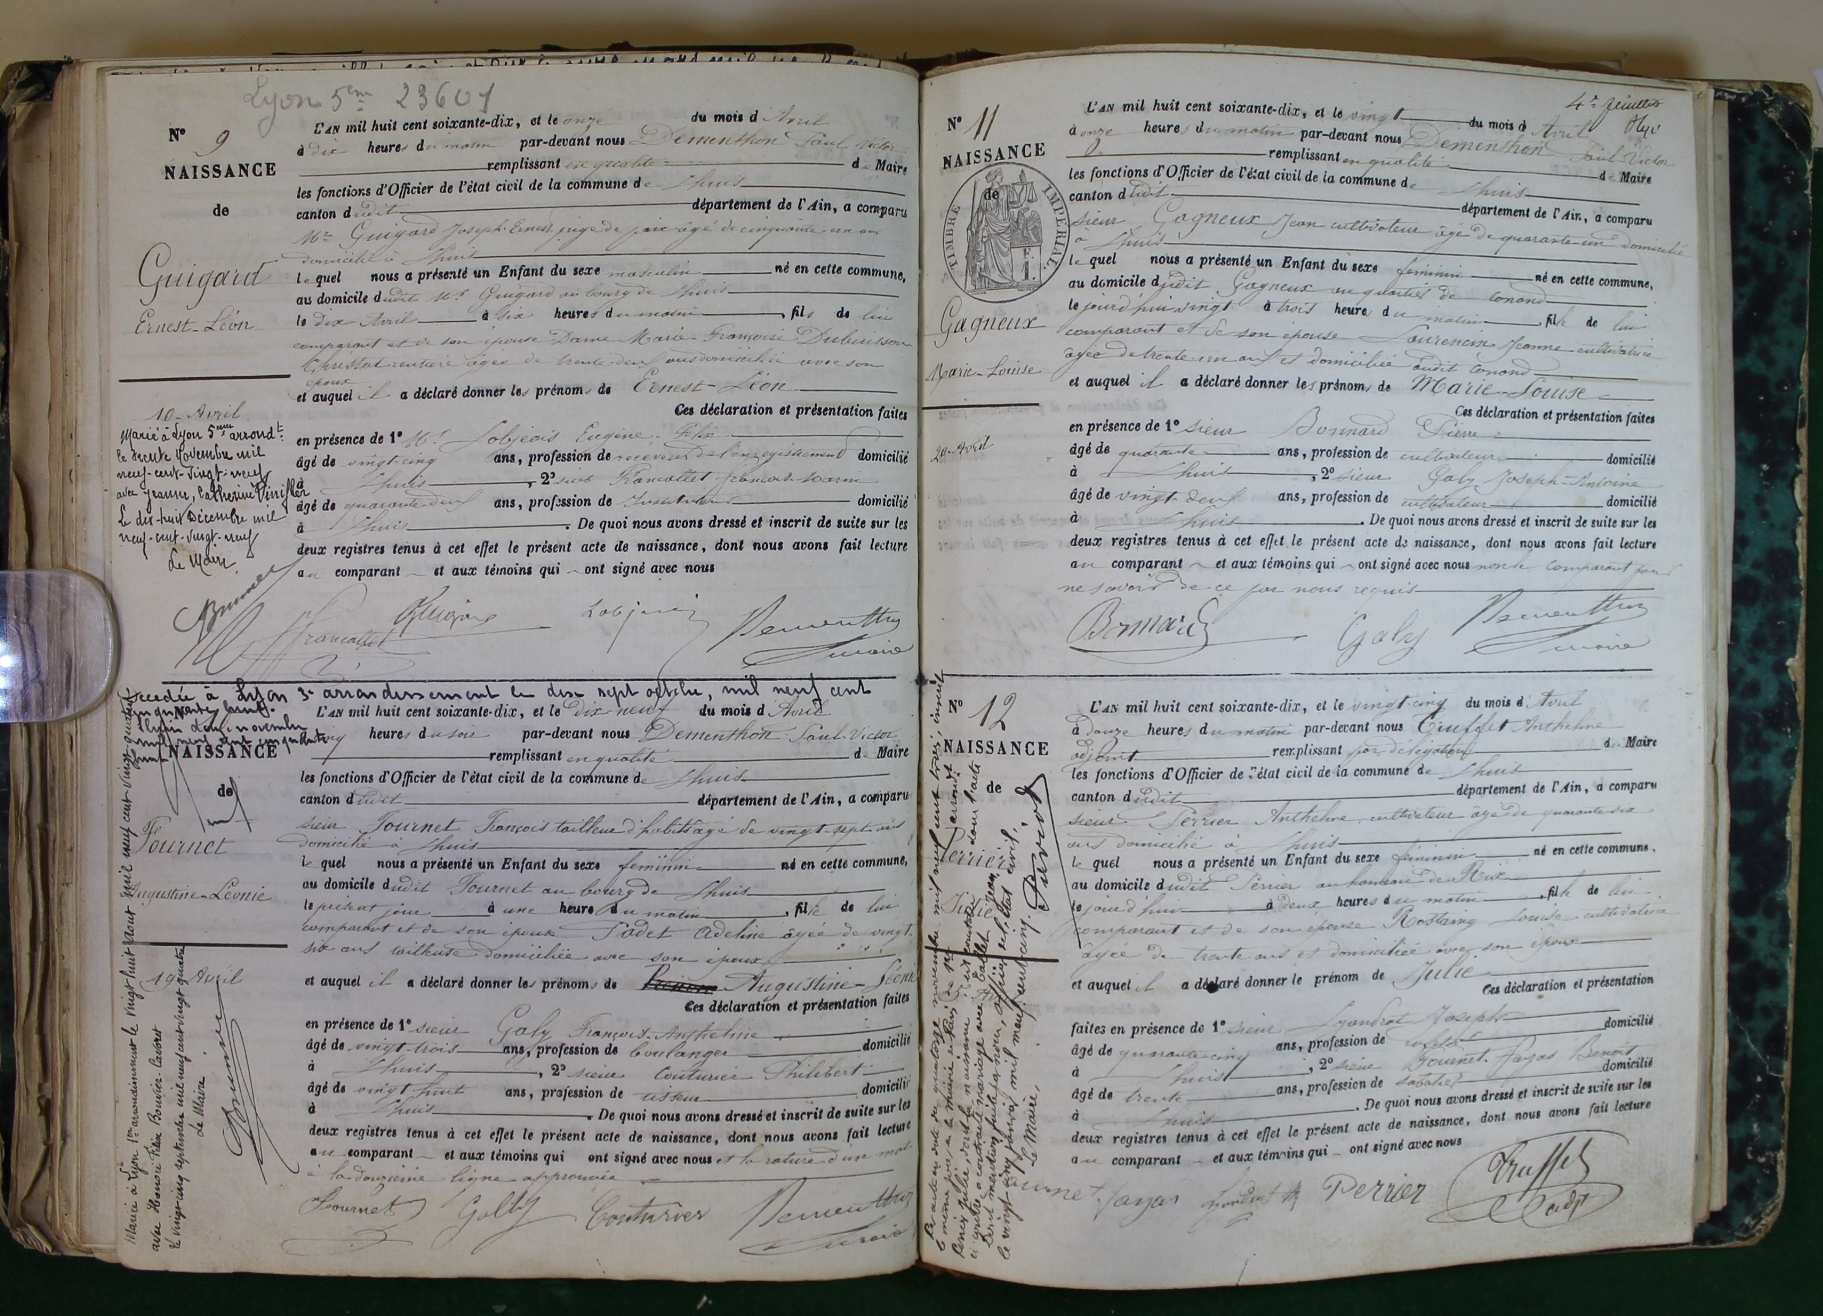 Lyon 5em 23601
N° 9
NAISSANCE
de
Guigard
Ernest-Léon
10 Avril
Marié à Lyon 5eme arrondt
le trente Novembre mil
neuf-cent-vingt-neuf
avec Jeanne, Catherine
Le dix-huit Décembre mil
neuf-cent-vingt-neuf
Le Maire
L'AN mil huit cent soixante-dix, et le onze du mois d'Avril
à dix heures du matin par-devant nous Dementhon Paul Victor
remplissant en qualité de Maire
les fonctions d'Officier de l'état civil de la commune de Lhuis
canton dudit département de l'Ain, a comparu
Mr Guigard Joseph Ernest juge de paix âgé de cinquante un ans
domicilié à Lhuis
lequel nous a présenté un Enfant du sexe masculin né en cette commune,
au domicile dudit Mr Guigard au bourg de Lhuis
le dix Avril à six heures du matin, fils de lui
comparant et de son épouse Dame Marie Françoise Dubuisson
Christot rentière âgée de trente deux ans domiciliée avec son
époux
et auquel il a déclaré donner les prénoms de Ernest-Léon
Ces déclaration et présentation faites
en présence de 1° Mr Lobjeois Eugène Félix
âgé de vingt cinq ans, profession de receveur de l'enregistrement domicilié
à Lhuis, 2° sieur Francottet François
âgé de quarante deux ans, profession de Instituteur domicilié
à Lhuis. De quoi nous avons dressé et inscrit de suite sur les
deux registres tenus à cet effet le présent acte de naissance, dont nous avons fait lecture
au comparant et aux témoins qui ont signé avec nous
Brunet
Francottet Guigard Lobjeois Dementhon
maire
Décédée à Lyon 3e arrondissement le dix sept octobre, mil neuf cent
cinquante
Lhuis novembre
mil neuf cent cinquante
NAISSANCE
de
Tournet
Augustine-Léonie
19 Avril
Mariée à Lyon 1er arrondissement le vingt huit Aout mil neuf cent vingt quatre
avec Honoré Félix Bouvier Cavoret
le vingt cinq septembre mil neuf cent vingt quatre
Le Maire
Brunet
L'AN mil huit cent soixante-dix, et le dix neuf du mois d'Avril
à cinq heures du soir par-devant nous Dementhon Paul Victor
remplissant en qualité de Maire
les fonctions d'Officier de l'état civil de la commune de Lhuis
canton dudit département de l'Ain, a comparu
sieur Tournet François tailleur d'habits âgé de vingt-sept ans
domicilié à Lhuis
lequel nous a présenté un Enfant du sexe féminin né en cette commune,
au domicile dudit Tournet au bourg de Lhuis
le présent jour à une heure du matin, fille de lui
comparant et de son épouse Fadet Adeline âgée de vingt
six ans tailleuse domiciliée avec son époux
et auquel il a déclaré donner les prénoms de Augustine-Léonie
Ces déclaration et présentation faites
en présence de 1° sieur Galy François-Anthelme
âgé de vingt-trois ans, profession de boulanger domicilié
à Lhuis, 2° sieur Couturier Philibert
âgé de vingt huit ans, profession de tisseur domicilié
à Lhuis. De quoi nous avons dressé et inscrit de suite sur les
deux registres tenus à cet effet le présent acte de naissance, dont nous avons fait lecture
au comparant et aux témoins qui ont signé avec nous et la rature d'un mot
à la douzième ligne approuvée
Tournet Galy Couturier Dementhon
maire
4e feuillet
N° 11
NAISSANCE
de
TIMBRE IMPÉRIAL
Gagneux
Marie-Louise
20 Avril
L'AN mil huit cent soixante-dix, et le vingt du mois d'Avril
à onze heures du matin par-devant nous Dementhon Paul Victor
remplissant en qualité de Maire
les fonctions d'Officier de l'état civil de la commune de Lhuis
canton dudit département de l'Ain, a comparu
sieur Gagneux Jean cultivateur âgé de quarante-un domicilié
à Lhuis
lequel nous a présenté un Enfant du sexe féminin né en cette commune,
au domicile dudit Gagneux au quartier de Conand
le jourd'hui vingt à trois heures du matin, fille de lui
comparant et de son épouse Laurencin Jeanne cultivatrice
âgée de trente un ans et domiciliée audit Conand
et auquel il a déclaré donner les prénoms de Marie-Louise
Ces déclaration et présentation faites
en présence de 1° sieur Bonnard Pierre
âgé de quarante ans, profession de cultivateur domicilié
à Lhuis, 2° sieur Galy Joseph-Antoine
âgé de vingt deux ans, profession de cultivateur domicilié
à Lhuis. De quoi nous avons dressé et inscrit de suite sur les
deux registres tenus à cet effet le présent acte de naissance, dont nous avons fait lecture
au comparant et aux témoins qui ont signé avec nous non le comparant pour
ne savoir de ce par nous requis
Bonnard Galy Dementhon
maire
N° 12
NAISSANCE
de
Perrier
Julie
Le Maire,
L'AN mil huit cent soixante-dix, et le vingt cinq du mois d'Avril
à douze heures du matin par-devant nous Truffet Anthelme
adjoint remplissant par délégation de Maire
les fonctions d'Officier de l'état civil de la commune de Lhuis
canton dudit département de l'Ain, a comparu
sieur Perrier Anthelme cultivateur âgé de quarante six
ans domicilié à Lhuis
lequel nous a présenté un Enfant du sexe féminin né en cette commune,
au domicile dudit Perrier au hameau de Rix
le jour d'hui à deux heures du matin, fille de lui
comparant et de son épouse Rostaing Louise cultivatrice
âgée de trente ans et domiciliée avec son époux
et auquel il a déclaré donner le prénom de Julie
Ces déclaration et présentation
faites en présence de 1° sieur Joseph domicilié
âgé de quarante cinq ans, profession de
à Lhuis, 2° sieur Tournet-Fayas Benoit
âgé de trente ans, profession de sabotier domicilié
à Lhuis. De quoi nous avons dressé et inscrit de suite sur les
deux registres tenus à cet effet le présent acte de naissance, dont nous avons fait lecture
au comparant et aux témoins qui ont signé avec nous
Perrier Truffet
adjt